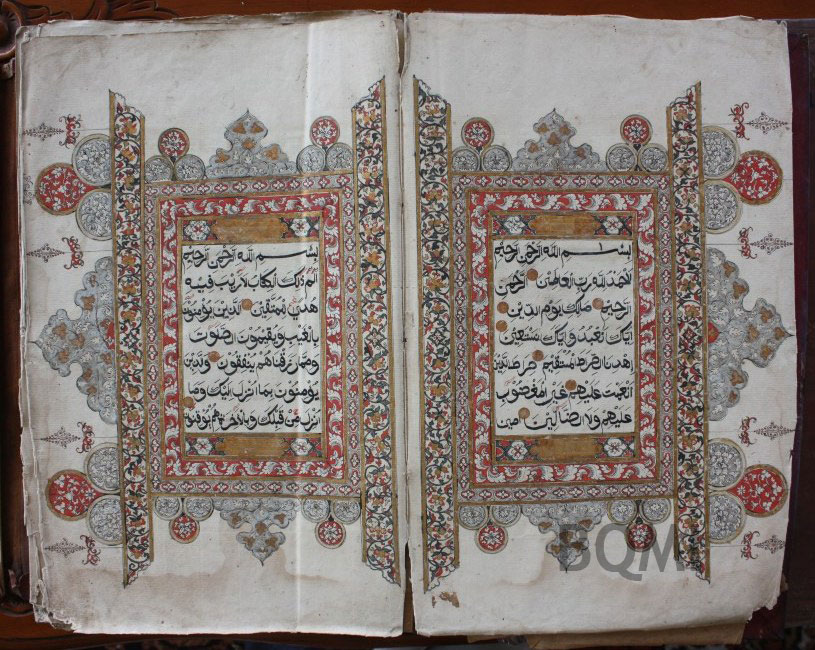 بسم الله الرحمن الرحيم
الحمد لله رب العالمين الرحمن
الرحيم ملك يوم الدين
اياك نعبد واياك نستعين
اهدنا الصرط المستقيم صرط الذين
انعمت عليهم غير المغضوب
عليهم ولا الضالين امين
بسم الله الرحمن الرحيم
الم ذلك الكتاب لا ريب فيه
هدى للمتقين الذين يؤمنون
بالغيب ويقيمون الصلوت
ومما رزقناهم ينفقون والذين
يؤمنون بما انزل اليك وما
انزل من قبلك وبالاخرة هم يوقنون
BQM